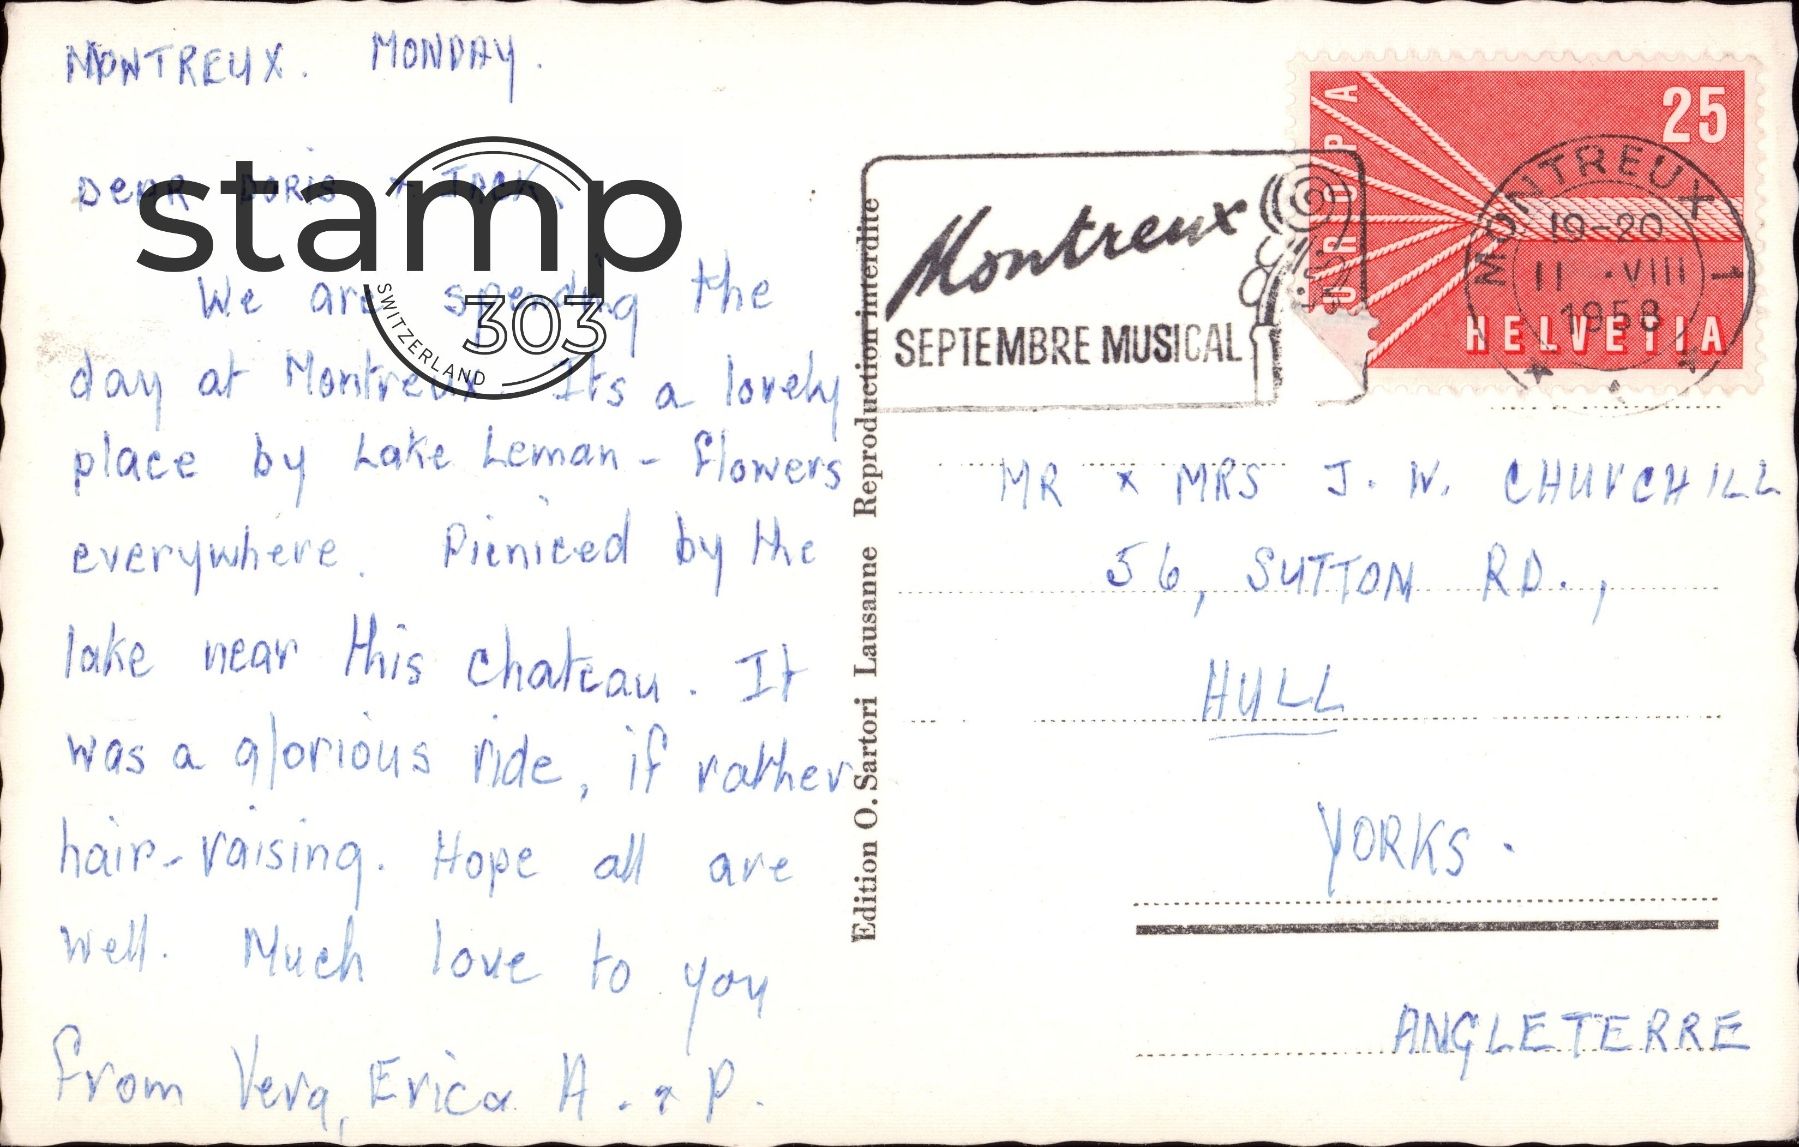 MONTREUX. MONDAY.
DEAR DORIS + JACK
We are spending the
day at Montreux. Its a lovely
place by Lake Leman - flowers
everywhere. Picniced by the
lake near this chateau. It
was a glorious ride, if rather
hair-raising. Hope all are
well. Much love to you
from Vera, Erica A. & P.
stamp
303
SWITZERLAND
Edition O. Sartori Lausanne Reproduction interdite
Montreux
SEPTEMBRE MUSICAL
EUROPA
25
HELVETIA
MONTREUX 1
19-20
11.VIII
1958
MR x MRS J. W. CHURCHILL
56, SUTTON RD.,
HULL
YORKS.
ANGLETERRE